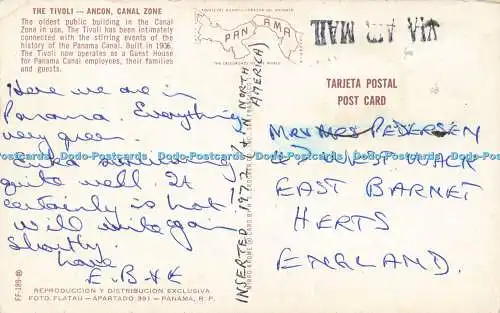 THE TIVOLI — ANCON, CANAL ZONE
The oldest public building in the Canal
Zone in use, The Tivoli has been intimately
connected with the stirring events of the
history of the Panama Canal. Built in 1906,
The Tivoli now operates as a Guest House
for Panama Canal employees, their families
and guests.
Here we are in
Panama. Everything
very green
quite well. It
certainly is hot.
Will write again
shortly.
Love
E, B & K
FF-189
REPRODUCCION Y DISTRIBUCION EXCLUSIVA
FOTO FLATAU — APARTADO 391 — PANAMA, R. P.
PANAMA
THE CROSSROADS OF THE WORLD
INSERTED 19/ IN NORTH
AMERICA)
VIA AIR MAIL
TARJETA POSTAL
POST CARD
MR & MRS PEDERSEN
WALK
EAST BARNET
HERTS
ENGLAND.
Dodo-Postcards Dodo-Postcards Dodo-Postcards Dodo-Postcards Dodo-Postcards Dodo-Postcards